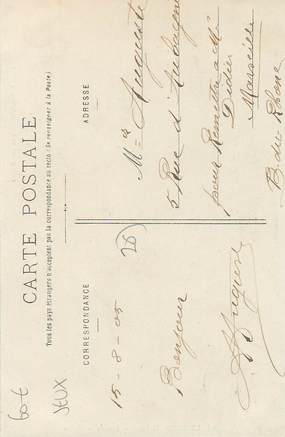 CARTE POSTALE
Tous les pays étrangers n'acceptent pas la correspondance au recto (Se renseigner à la Poste)
CORRESPONDANCE
ADRESSE
15-8-05
Bonjour
Mme Auguste
5 Rue d'Aubagne
pour Remettre a Mr
Didier
Marseille
B. du Rhône
(26)
60 €
JEUX